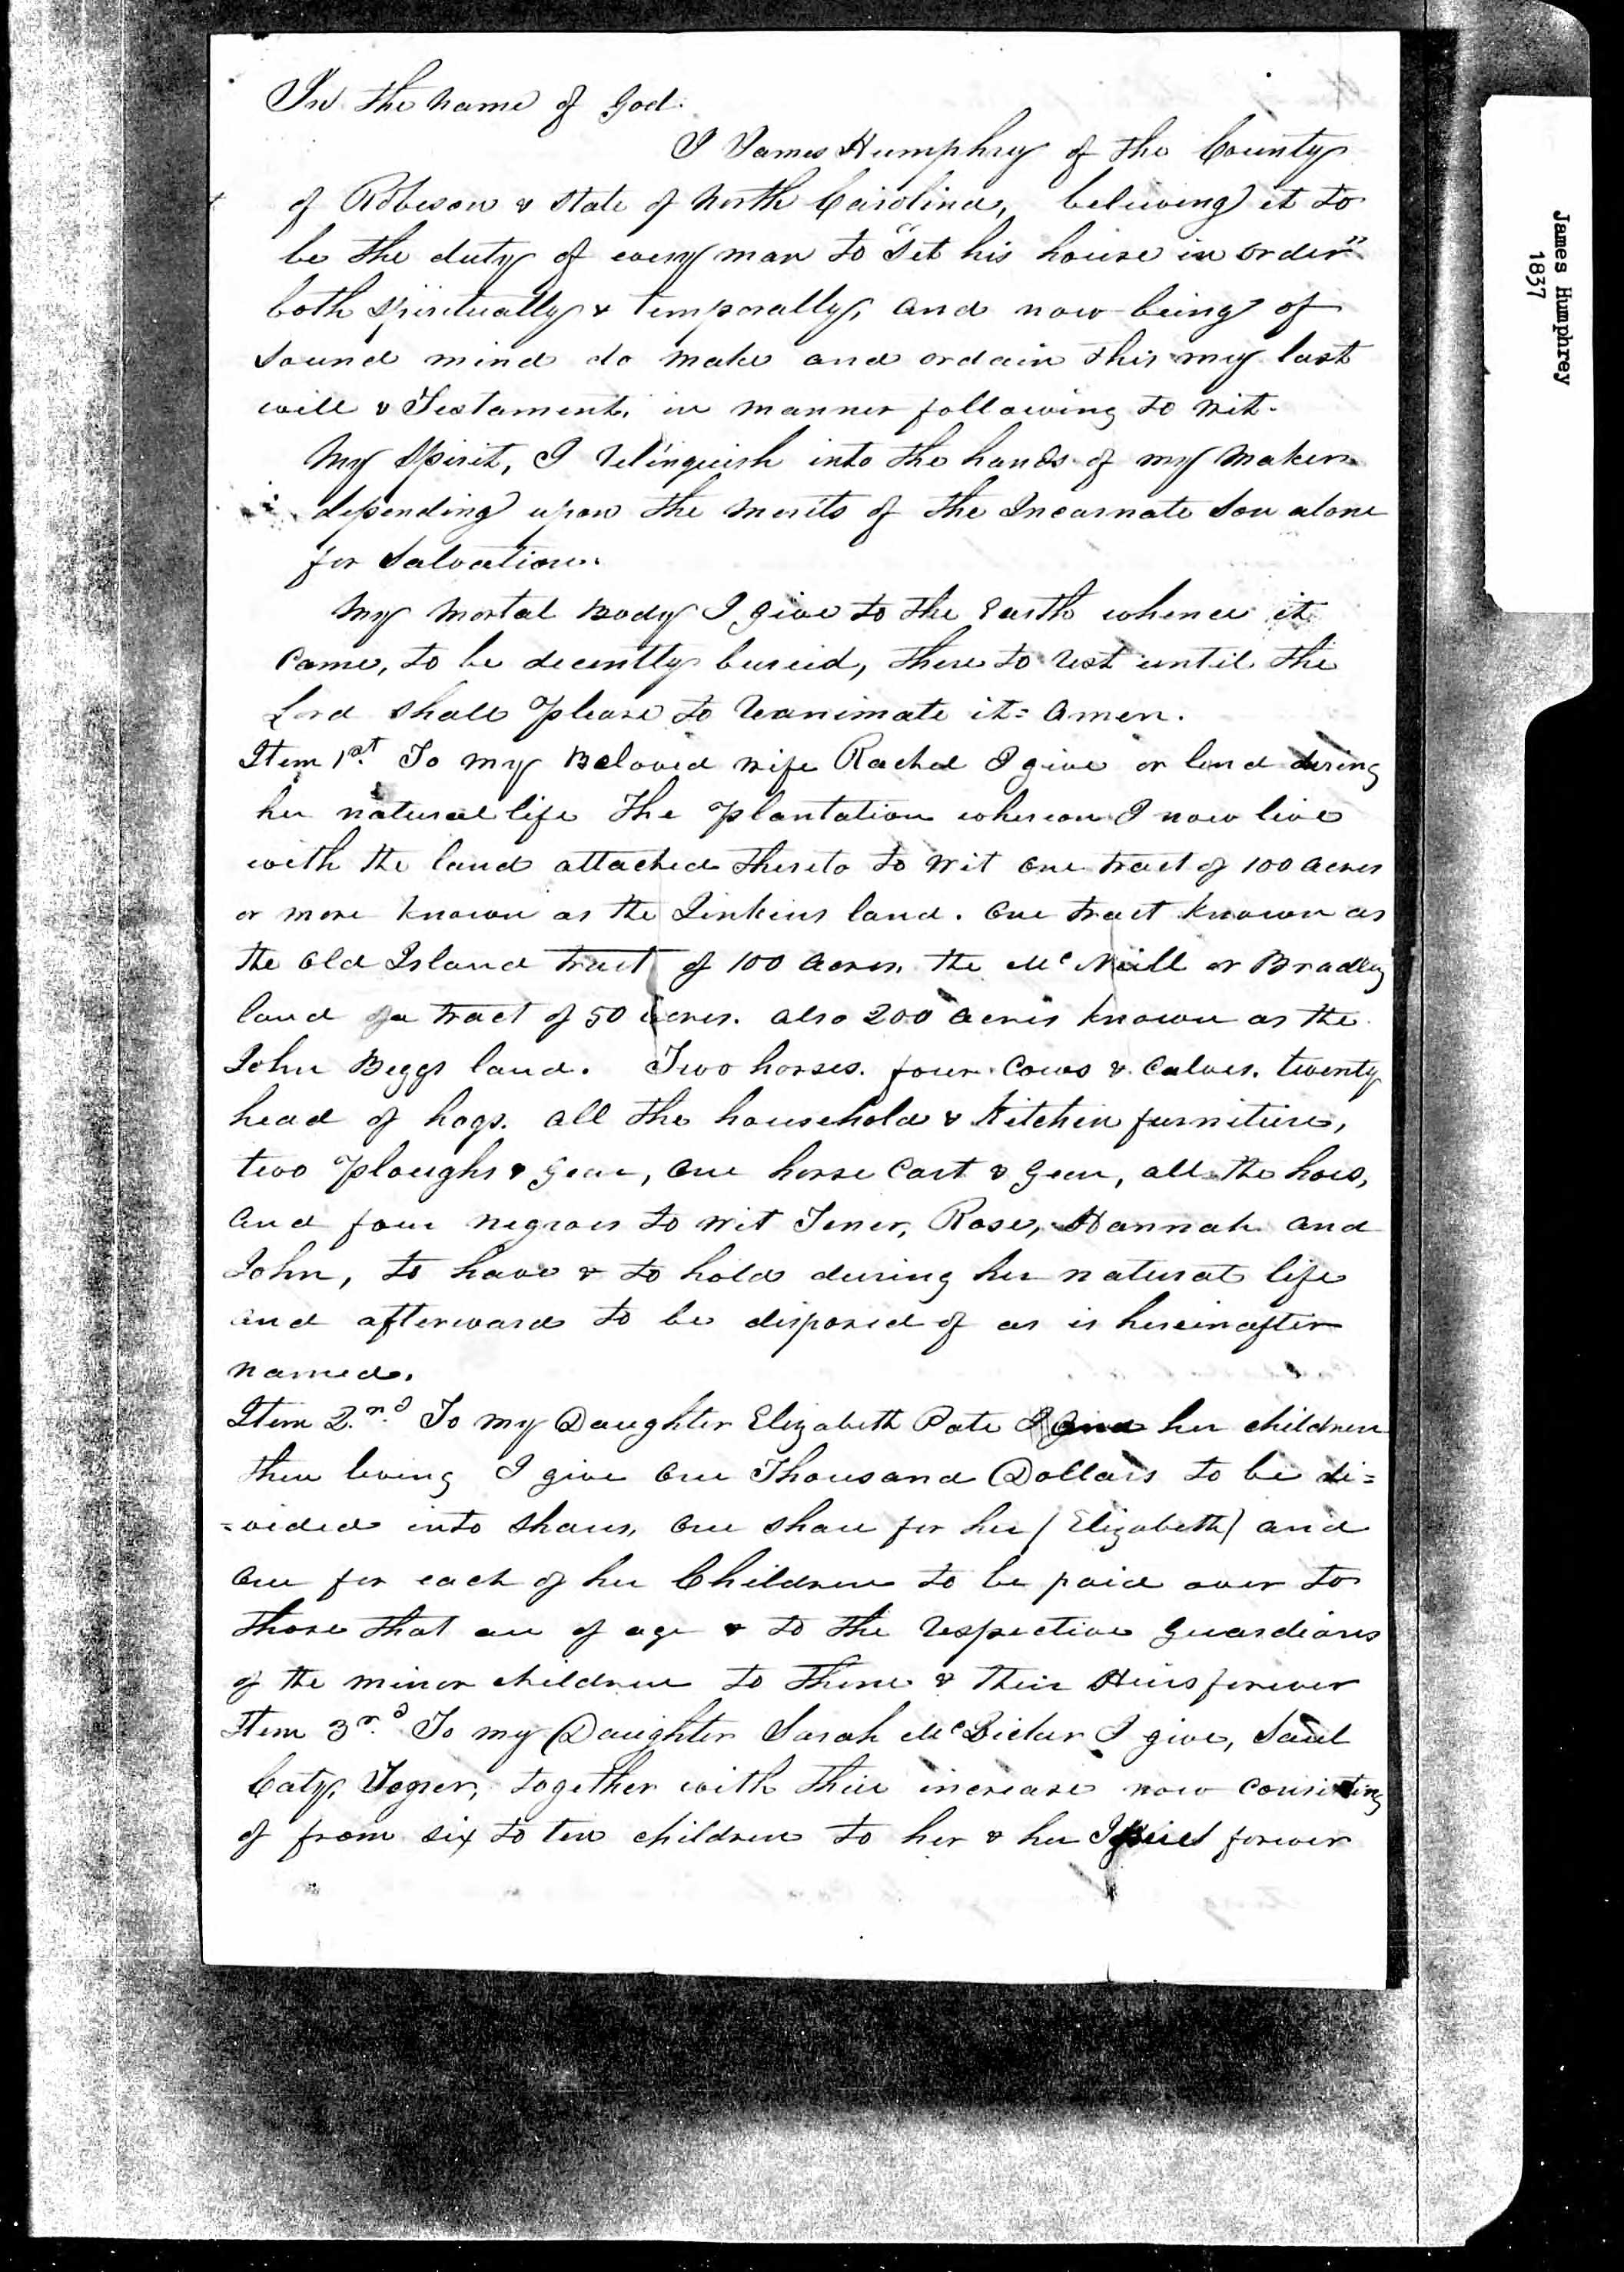 In the name of God.
I James Humphrey of the County
of Robeson & State of North Carolina, believing it to
be the duty of every man to "Set his house in order"
both Spiritually & temporally, and now being of
Sound mind do make and ordain this my last
will & Testament, in manner following to wit.
My Spirit, I relinquish into the hands of my Maker
depending upon the merits of the Incarnate Son alone
for Salvation.
My mortal Body I give to the Earth whence it
Came, to be decently buried, there to rest until the
Lord Shall Please to reanimate it = Amen.
Item 1st. To my Beloved wife Rachel I give or lend during
her natural life the Plantation whereon I now live
with the land attached thereto to wit one tract of 100 acres
or more known as the Jinkins land. One tract known as
the Old Island tract of 100 acres, the McNeill or Bradley
land a tract of 50 acres. also 200 acres known as the
John Beggs land. Two horses. four Cows & Calves. twenty
head of hogs. all the household & Kitchen furniture,
two Ploughs & Gear, one horse Cart & Gear, all the hoes,
and four negroes to wit Tener, Rose, Hannah and
John, to have & to hold during her natural life
and afterward to be disposed of as is hereinafter
named.
Item 2.nd To my Daughter Elizabeth Pate and her children
then living I give One Thousand Dollars to be di=
=vided into Shares, One Share for her (Elizabeth) and
One for each of her Children to be paid over to
those that are of age & to the respective Guardians
of the minor children to them & their Heirs forever
Item 3r.d To my Daughter Sarah I give, Saul
Caty, together with their increase now Consisting
of from six to ten children to her & her forever
James Humphrey
1837